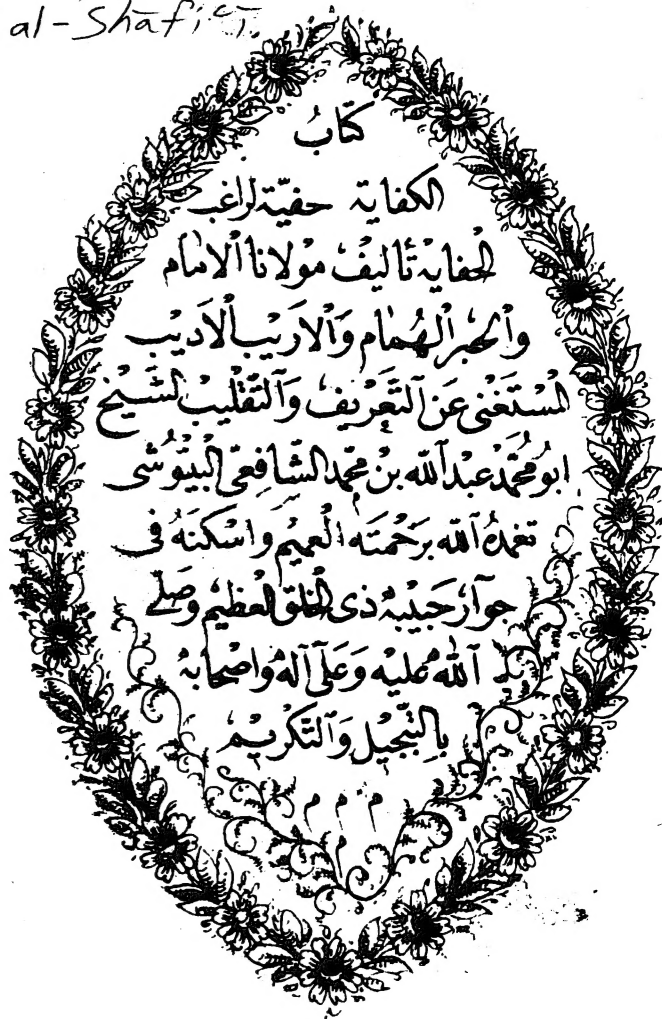 al-Shāfiʿī.
كتَابُ
الكفاية حفيّة لراغب
الحفاية تأليف مولانا الامام
والحبر الهُمام وَالاريب الاديب
المستَغنى عَن التَعريف وَالتقليب الشَيخ
ابو محمّد عبد الله بن محمّد الشّافِعىّ البيتوُشى
تغمدهُ الله برَحمته العميم وَاسكنهُ فى
جوآر حَبيبه ذى الخلق العظيم وَصَلى
الله عليه وَعَلى آله واصحابه
بالتبّجيل وَالتّكريم
م م م
م